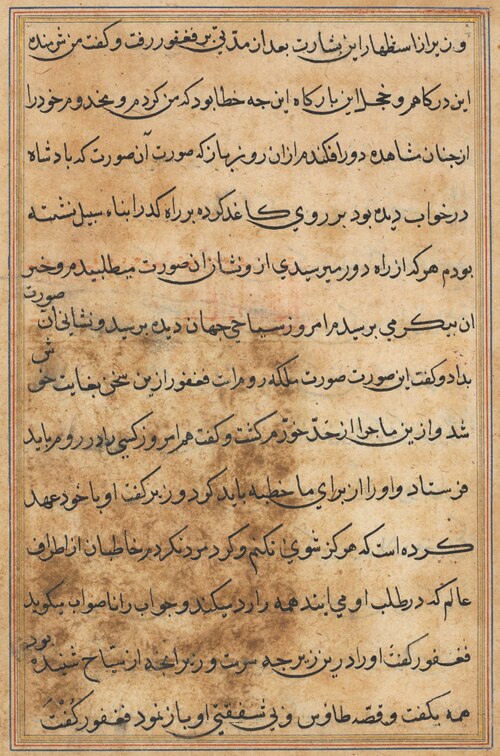 وزیر از استظهار این بشارت بعد از مدتی بر فغفور رفت و گفت من شرمنده
این درکاهم و خجل این بارکاه این جه خطا بود که من کردم و مخدوم خود را
از جنان مشاهده دور افکندم ازان روز باز که صورت آن صورت که بادشاه
در خواب دیده بود بر روی کاغد کرده بر راه کدر ابناء سبیل نشسته
بودم هر که از راه دور میرسیدی ازو نشان ان صورت میطلبیدم و خبر
ان بیکر می برسیدم امروز سیاحی جهان دیده برسید و نشانی ان صورت
بداد و کفت این صورت صورت ملکه روم است فغفور ازین سخن بغایت خوش
شد و ازین ماجرا از حد خرم کشت و کفت هم امروز کسی را در روم باید
فرستاد و او را از برای ما خطبه باید کرد وزیر کفت او با خود عهد
کرده است که هرکز شوی نکنم و کرد مرد نکردم خاطبان از اطراف
عالم که در طلب او می ایند همه را رد میکند و جواب را ناصواب میکوید
فغفور کفت او را درین زیر جه سرست وزیر انجه از سیاح شنیده بود
همه بکفت و قصه طاؤس و بی شفقتی او باز نمود فغفور کفت